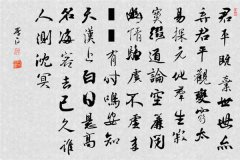 君平既棄世世亦
棄君平觀變窮太
易探元化群生寂
寞綴道論空簾閉
幽情騶虞不虛來
有時鳴安知
天漢上白日懸高
名海客去已久誰
人測沈冥